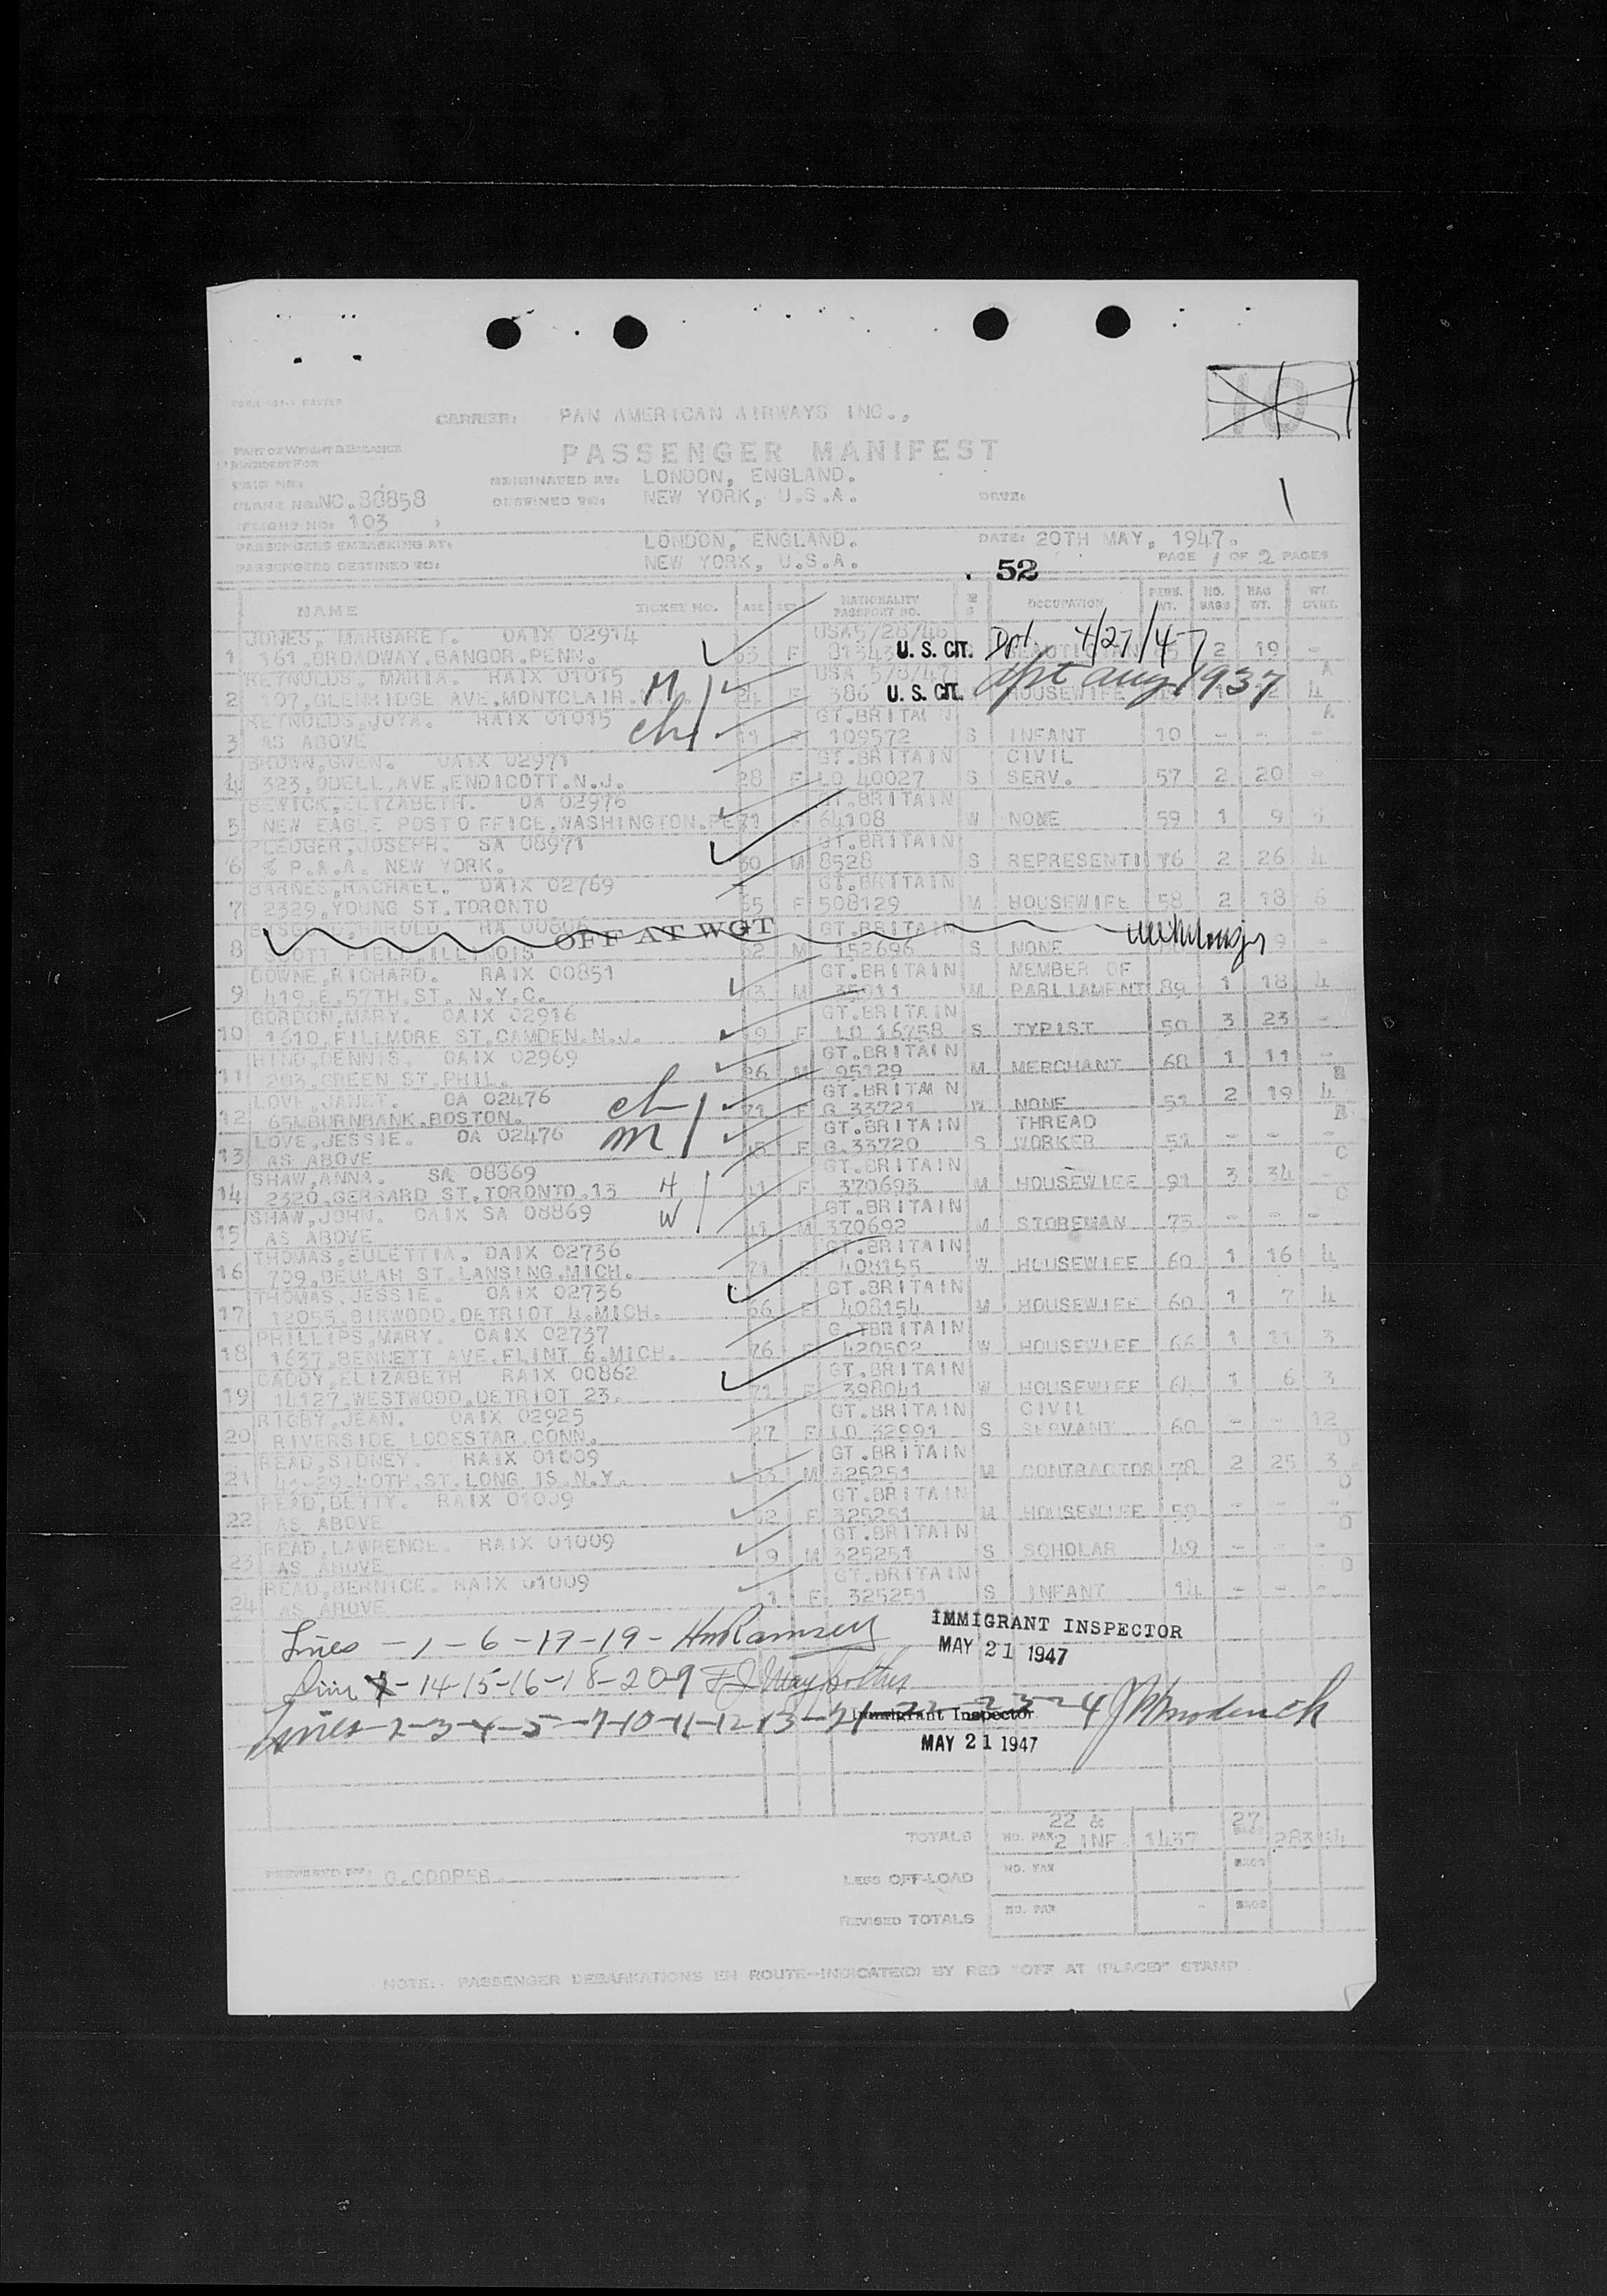 10
CARRIER: PAN AMERICAN AIRWAYS INC.,
PART OF WEIGHT & BALANCE
PASSENGER MANIFEST
ORIGINATED AT: LONDON, ENGLAND.
PLANE NO. NC.88858 DESTINED TO: NEW YORK, U.S.A. DATE:
(FLIGHT NO: 103 )
PASSENGERS EMBARKING AT: LONDON, ENGLAND. DATE: 20TH MAY, 1947.
PASSENGERS DESTINED TO: NEW YORK, U.S.A. PAGE 1 OF 2 PAGES
52
NAME TICKET NO. AGE SEX NATIONALITY PASSPORT NO. M S OCCUPATION PERS. WT. NO. BAGS BAG WT. WT. OVRT.
JONES, MARGARET. OAIX 02914 USA5/28/46
1 161,BROADWAY.BANGOR.PENN. F U. S. CIT. 4/27/47 2 19 -
REYNOLDS, MARIA. RAIX 01015 USA 5/8/47 A
2 107,GLENRIDGE AVE.MONTCLAIR. M F 386 U. S. CIT. dpt aug 1937 HOUSEWIFE 4
REYNOLDS,JOYA. RAIX 01015 GT.BRITAIN A
3 AS ABOVE ch 109572 S INFANT 10 - - -
BROWN,GWEN. OAIX 02971 GT.BRITAIN CIVIL
4 323,ODELL,AVE,ENDICOTT.N.J. 28 F LO 40027 S SERV. 57 2 20 -
BEWICK,ELIZABETH. OA 02976 GT.BRITAIN
5 NEW EAGLE POST OFFICE,WASHINGTON.PE 71 F 64108 W NONE 59 1 9
PLEDGER,JOSEPH. SA 08971 GT.BRITAIN
6 % P.A.A. NEW YORK. 30 M 8528 S REPRESENTI 76 2 26 4
BARNES,RACHAEL. OAIX 02769 GT.BRITAIN
7 2329,YOUNG ST.TORONTO 65 F 508129 M HOUSEWIFE 58 2 18 6
HAROLD. RA 00806 OFF AT WGT GT.BRITAIN
8 SCOTT FIELD.ILLINOIS 62 M 152696 S NONE 9 -
DOWNE,RICHARD. RAIX 00851 GT.BRITAIN MEMBER OF
9 419,E.57TH.ST. N.Y.C. M 35011 M PARLIAMENT 89 1 18 4
GORDON,MARY. OAIX 02916 GT.BRITAIN
10 1610,FILLMORE ST,CAMDEN.N.J. 19 F LO 16758 S TYPIST 50 3 23 -
HIND,DENNIS. OAIX 02969 GT.BRITAIN
11 283,GREEN ST.PHIL. 26 M 95129 M MERCHANT 68 1 11 -
LOVE,JANET. OA 02476 GT.BRITAIN
12 65,BURNBANK.BOSTON. ch 71 F G 33721 W NONE 51 2 19 4
LOVE,JESSIE. OA 02476 GT.BRITAIN THREAD
13 AS ABOVE m F G.33720 S WORKER 51 - - -
SHAW,ANNA. SA 08869 GT.BRITAIN C
14 2320,GERRARD ST.TORONTO.13 H 41 F 370693 M HOUSEWIFE 91 3 34 -
SHAW,JOHN. OAIX SA 08869 GT.BRITAIN C
15 AS ABOVE W 41 M 370692 M STOREMAN 75 - - -
THOMAS,EULETTIA. OAIX 02736 GT.BRITAIN
16 709,BEULAH ST.LANSING.MICH. 71 F 408155 W HOUSEWIFE 60 1 16 4
THOMAS,JESSIE. OAIX 02736 GT.BRITAIN
17 12055,BIRWOOD.DETRIOT 4.MICH. 66 F 408154 M HOUSEWIFE 60 1 7 4
PHILLIPS,MARY. OAIX 02737 G TBRITAIN
18 1637,BENNETT AVE.FLINT 6.MICH. 76 F 420502 W HOUSEWIFE 66 1 11 3
CADDY,ELIZABETH RAIX 00862 GT.BRITAIN
19 14127,WESTWOOD,DETRIOT 23. 71 F 398041 W HOUSEWIFE 64 1 6 3
RIGBY,JEAN. OAIX 02925 GT.BRITAIN CIVIL
20 RIVERSIDE LODESTAR.CONN. 27 F LO 32991 S SERVANT 60 - - 12
READ,SIDNEY. RAIX 01009 GT.BRITAIN D
21 41-29,40TH.ST.LONG IS.N.Y. M 325251 M CONTRACTOR 78 2 25 3
READ,BETTY. RAIX 01009 GT.BRITAIN D
22 AS ABOVE F 325251 M HOUSEWIFE 59 - - -
READ,LAWRENCE. RAIX 01009 GT.BRITAIN D
23 AS ABOVE 9 M 325251 S SCHOLAR 49 - - -
READ,BERNICE. RAIX 01009 GT.BRITAIN D
24 AS ABOVE 1 F 325251 S INFANT 14 - - -
Lines - 1 - 6 - 17 - 19 - HmRamsey IMMIGRANT INSPECTOR
MAY 21 1947
- 14-15-16-18-20-9
Lines-2-3-4-5-7-10-11-12-13-21-22-23-24 Immigrant Inspector
MAY 21 1947
TOTALS NO. PAX 22 & 2 INF 1437 27 BAGS 283
PREPARED BY: G.COOPER.
LESS OFF-LOAD NO. PAX BAGS
REVISED TOTALS NO. PAX - BAGS
NOTE:- PASSENGER DEBARKATIONS EN ROUTE-INDICATE(D) BY RED "OFF AT (PLACE)" STAMP